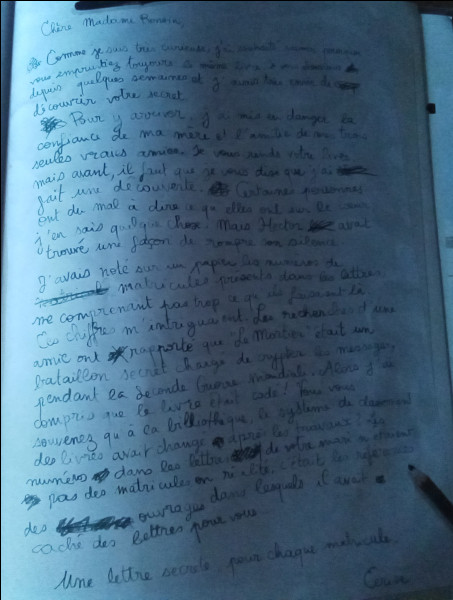 Chère Madame
Comme je suis très curieuse, j'ai
vous empruntiez toujours
depuis quelques semaines et j'avais très envie de
découvrir votre secret
Pour y arriver, j'ai mis en danger la
confiance de ma mère et l'amitié de mes trois
seules vraies amies. Je vous rends votre livre
mais avant, il faut que je vous dise que j'ai
fait une découverte. Certaines personnes
ont du mal à dire ce qu'elles ont sur le cœur
j'en sais quelque chose. Mais Hector avait
trouvé une façon de rompre son silence
J'avais noté sur un papier les numéros de
matricules présents dans les lettres
ne comprenant pas trop ce qu'ils faisaient là
Ces chiffres m'intriguaient. Les recherches d'une
amie ont rapporté que "Le Mortier" était un
bataillon secret chargé de crypter les messages,
pendant la Seconde Guerre mondiale. Alors j'ai
compris que le livre était codé! Vous vous
souvenez qu'à la bibliothèque, le système de classement
des livres avait changé après les travaux? Les
numéros dans les lettres de votre mari n'étaient
pas des matricules en réalité, c'était les références
des ouvrages dans lesquels il avait
caché des lettres pour vous
Une lettre secrète, pour chaque matricule.
Cerise